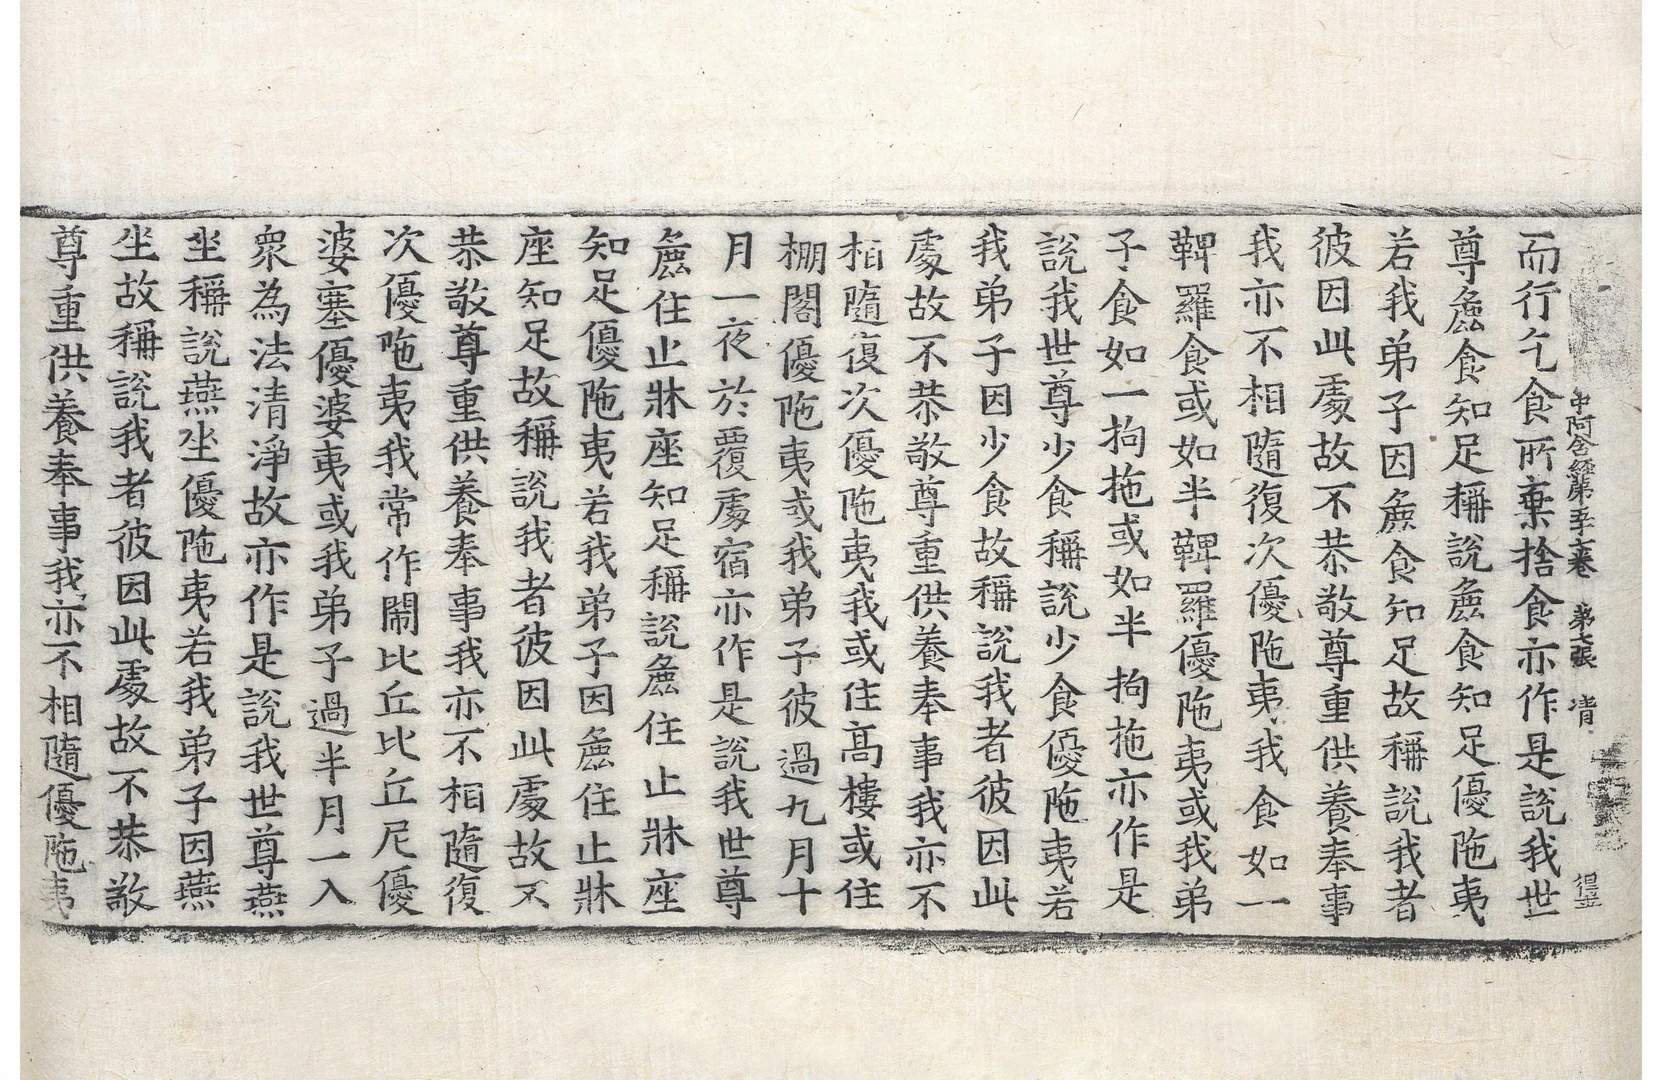 中阿含經第五十七卷　第七張　淸
而行乞食所棄捨食亦作是說我世
尊麁食知足稱說麁食知足優陁夷
若我弟子因麁食知足故稱說我者
彼因此處故不恭敬尊重供養奉事
我亦不相隨復次優陁夷我食如一
鞞羅食或如半鞞羅優陁夷或我弟
子食如一拘拖或如半拘拖亦作是
說我世尊少食稱說少食優陁夷若
我弟子因少食故稱說我者彼因此
處故不恭敬尊重供養奉事我亦不
相隨復次優陁夷我或住高樓或住
棚閣優陁夷或我弟子彼過九月十
月一夜於覆處宿亦作是說我世尊
麁住止牀座知足稱說麁住止牀座
知足優陁夷若我弟子因麁住止牀
座知足故稱說我者彼因此處故不
恭敬尊重供養奉事我亦不相隨復
次優陁夷我常作鬧比丘比丘尼優
婆塞優婆夷或我弟子過半月一入
衆為法清淨故亦作是說我世尊燕
坐稱說燕坐優陁夷若我弟子因燕
坐故稱說我者彼因此處故不恭敬
尊重供養奉事我亦不相隨優陁夷